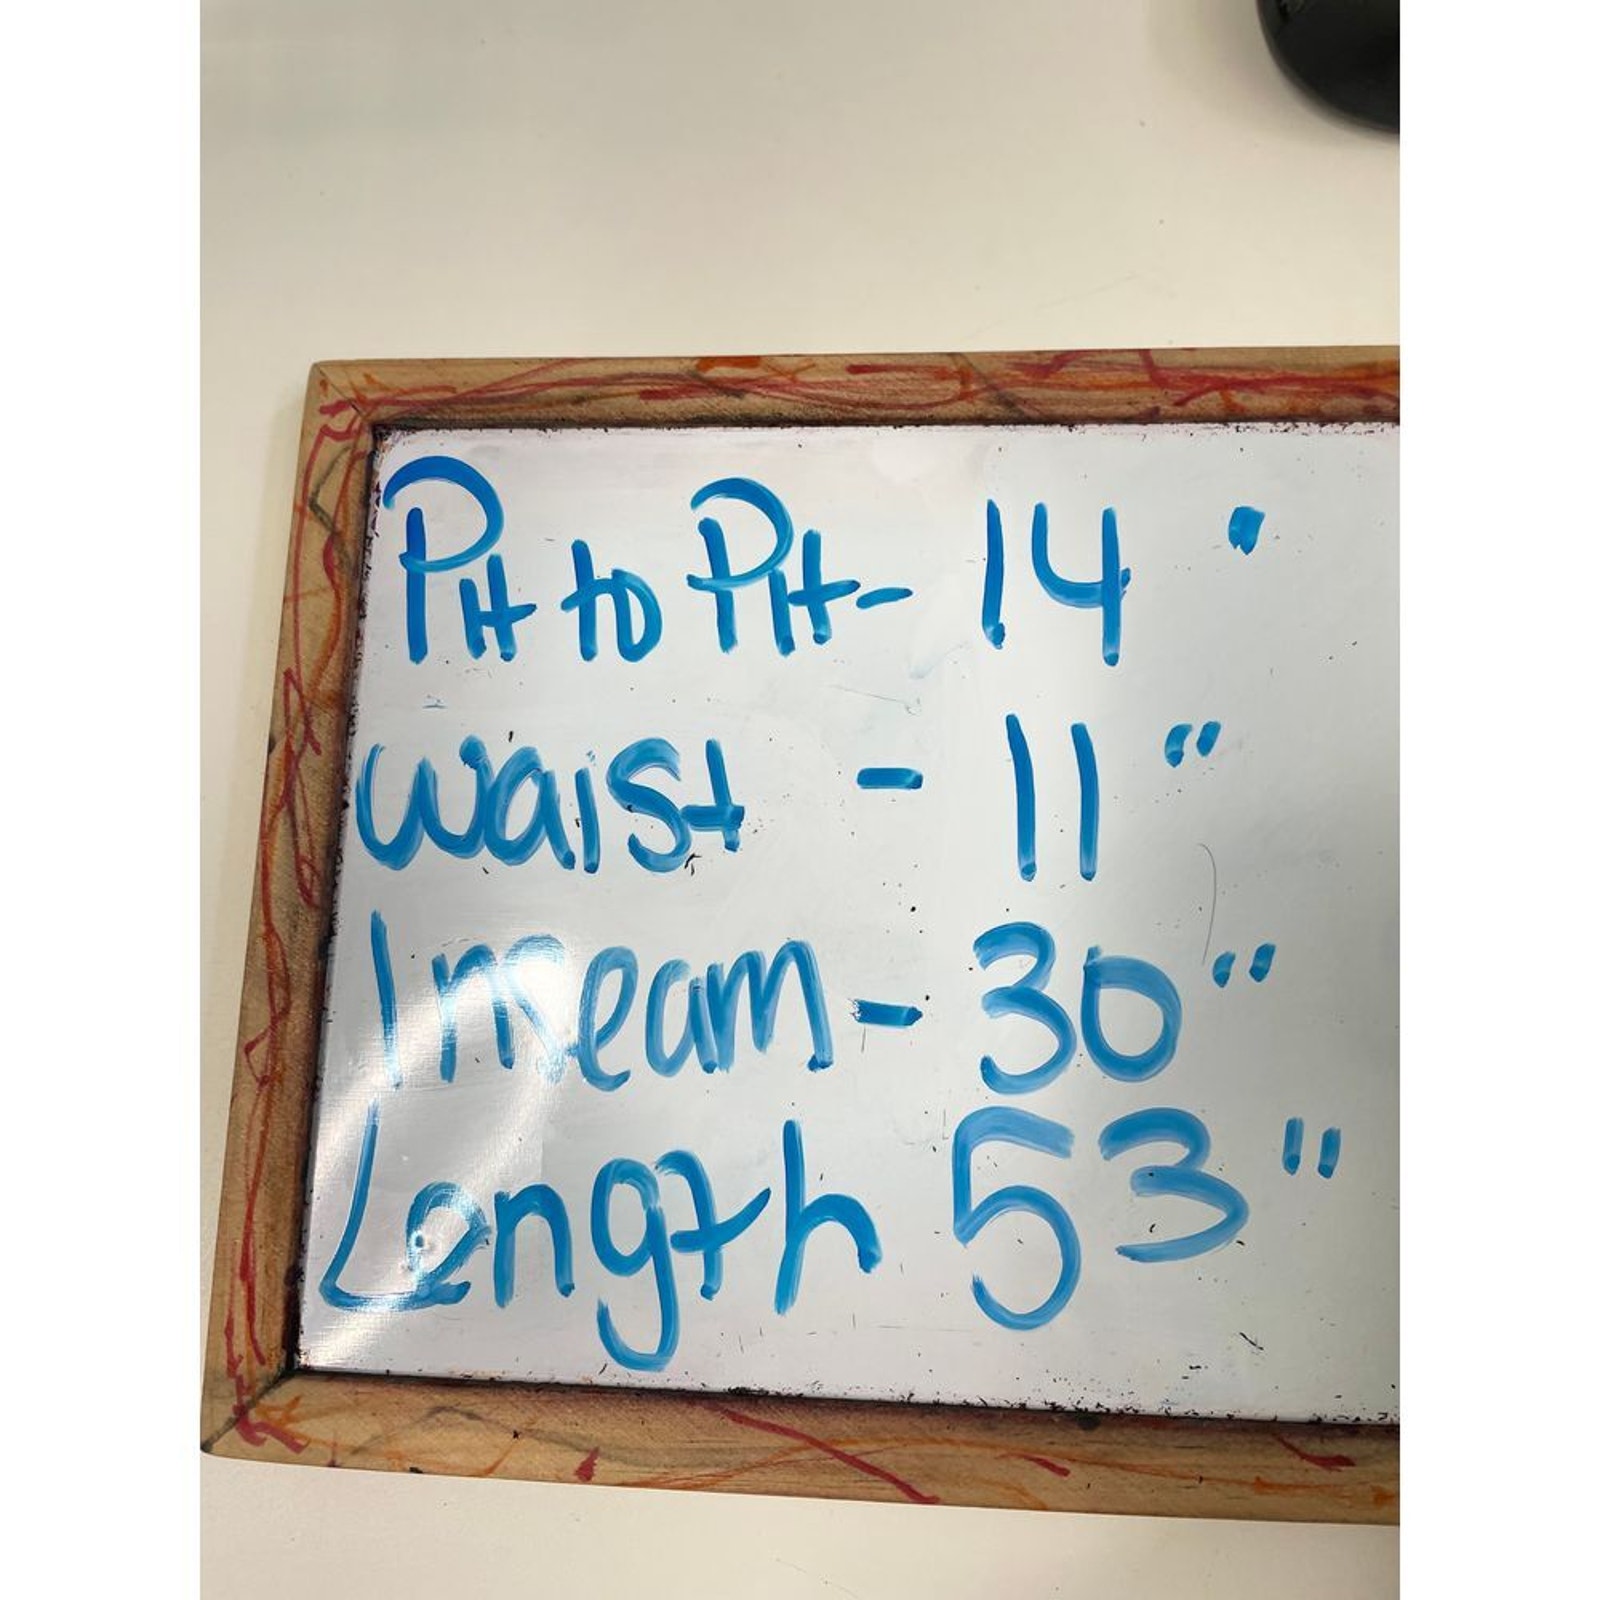 Pit to Pit - 14 "
Waist - 11 "
Inseam - 30 "
Length 53 "